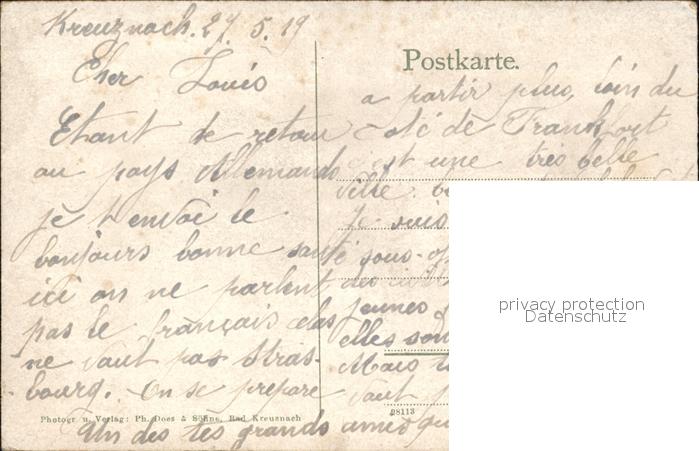 Kreuznach. 27. 5. 19
Cher Louis
Etant de retour
au pays Allemands
je t envoi le
bonjours bonne santé
ici on ne parlent
pas le français elas
ne vaut pas Stras-
bourg. On se prepare
Un des tes grands amis qu
Postkarte.
a partir plus loin du
coté de Frankfort
est une très belle
ville.
Je suis
sous-of
des
jeunes
elles son
Mais
vaut
Photogr. u. Verlag: Ph. Does & Söhne, Bad Kreuznach
28113
privacy protection
Datenschutz